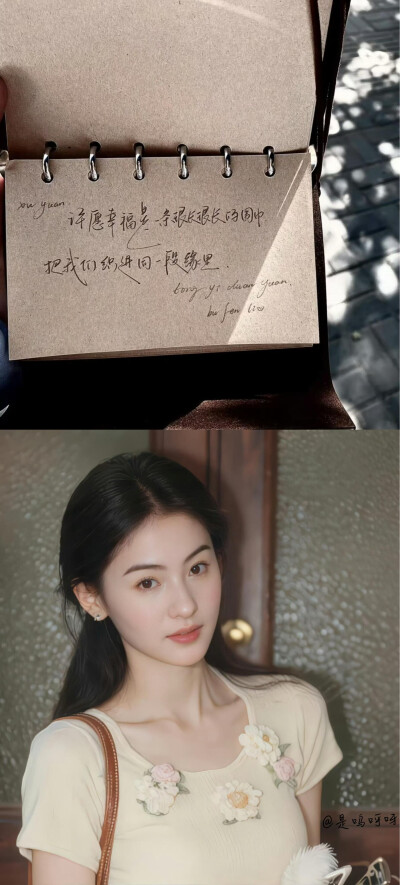 xu yuan
许愿幸福是一条很长很长的围巾
把我们织进同一段缘里.
tong yi duan yuan.
bu fen li
@是呜呀呀